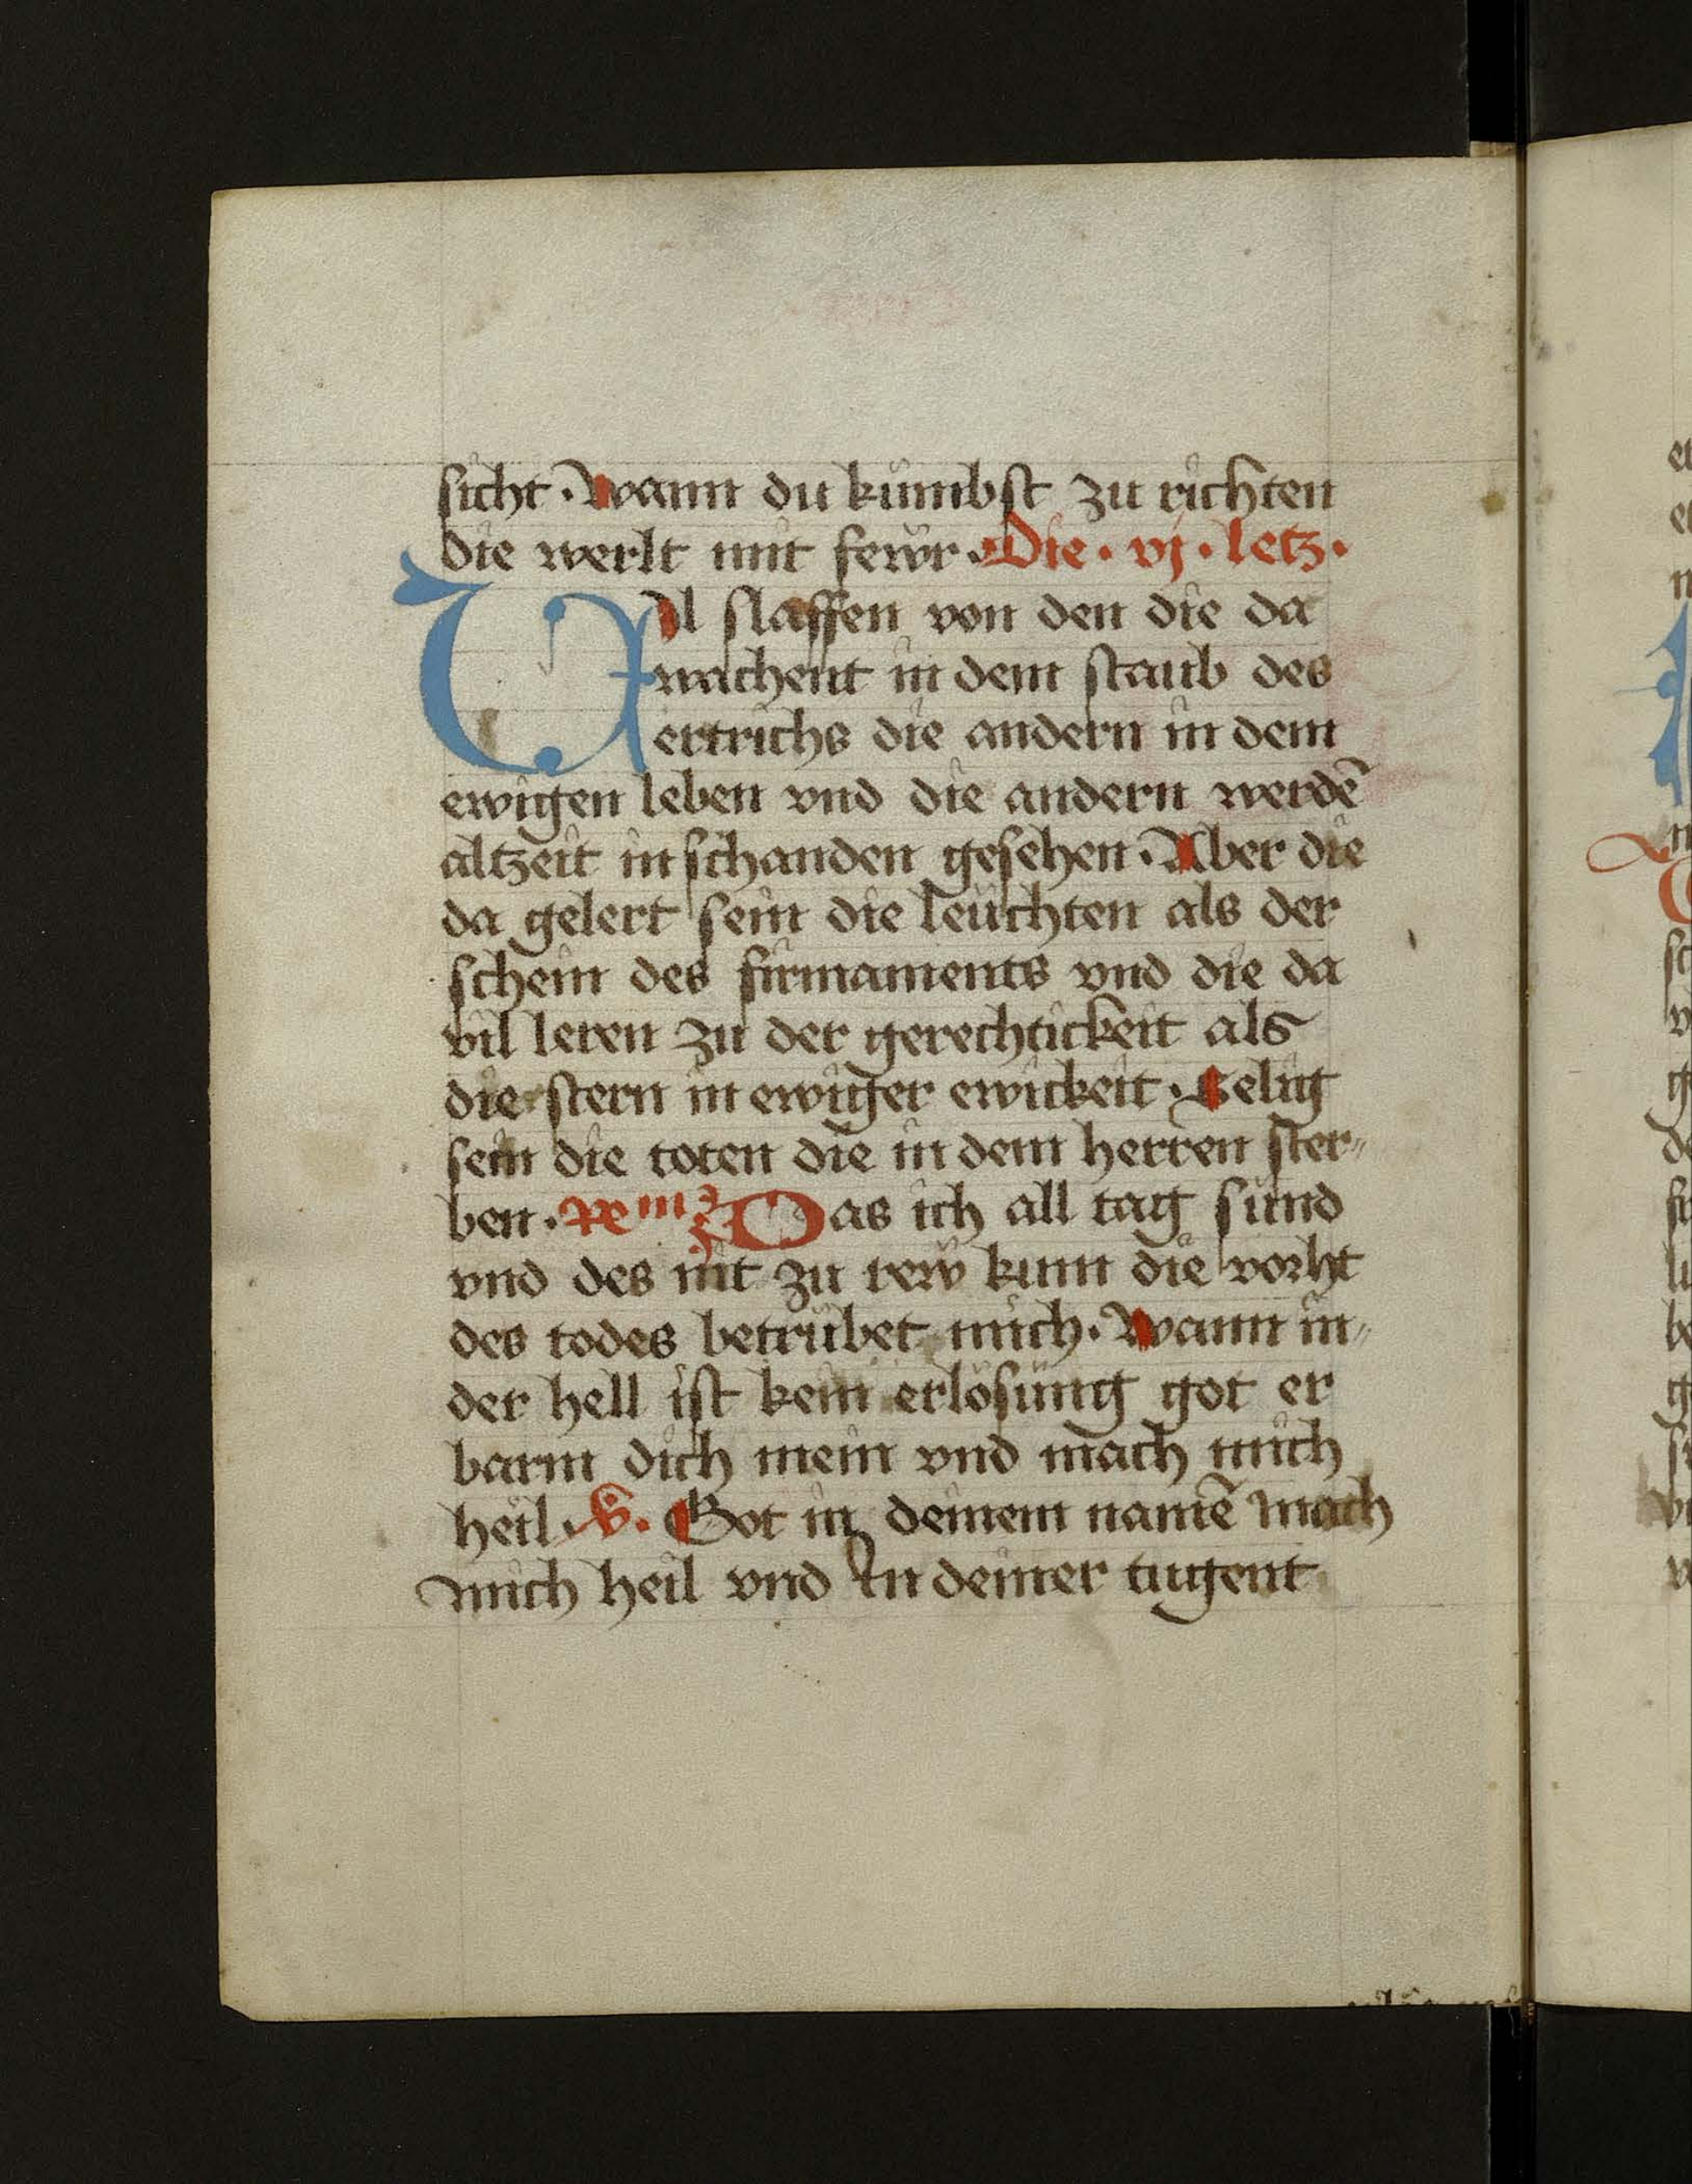 sicht · Wann du kumbst zu richten
die werlt mit fewr · Die · vj · letz ·
VIl slaffen von den die da
wachent in dem staub des
ertrichs die andern in dem
ewigen leben vnd die andern werdē
altzeit in schanden gesehen · Aber die
da gelert sein die leüchten als der
schein des firmaments vnd die da
vil leren zu der gerechtickeit als
die stern in ewiger ewickeit · Selig
sein die toten die in dem herren ster〃
ben · Das ich all tag sünd
vnd des nit zu rew kum die vorht
des todes betrübet mich · Wann in〃
der hell ist kein erlösung got er
barm dich mein vnd mach mich
heil · V. Got in deinem namē mach
mich heil vnd In deiner tugent